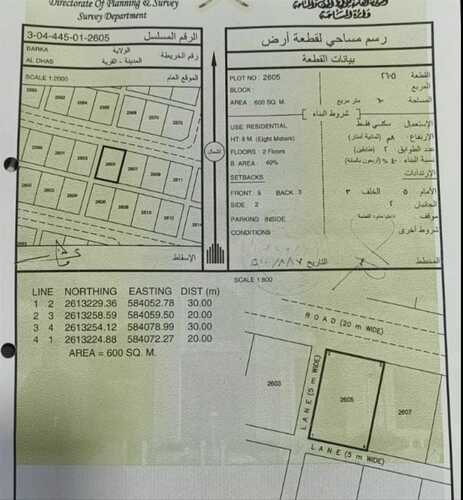 Directorate Of Planning & Survey
Survey Department
وزارة المساحة
3-04-445-01-2605
الرقم المسلسل
رسم مساحي لقطعة أرض
BARKA
الولاية
AL DHAS
المدينة - القرية
رقم الخريطة
بيانات القطعة
SCALE 1:2000
الموقع العام
PLOT NO : 2605
٢٦٠٥
القطعة
BLOCK :
المربع
AREA : 600 SQ. M.
٦٠٠ متر مربع
المساحة
شروط البناء
USE RESIDENTIAL
سكني فقط
الإستعمال
HT. 8 M. (Eight Meters)
٨م (ثمانية أمتار)
الإرتفاع
FLOORS : 2 Floors
٢ (طابقين)
عدد الطوابق
B. AREA : 40%
٤٠٪ (أربعون بالمئة)
نسبة البناء
SETBACKS
الإرتدادات
FRONT 5 BACK 3
الأمام ٥ الخلف ٣
SIDE : 2
الجانبان ٢
PARKING INSIDE
موقف
CONDITIONS
شروط أخرى
شمال
2605
2607
2611
2610
الإسقاط
التاريخ
المخطط
LINE NORTHING EASTING DIST (m)
1 2 2613229.36 584052.78 30.00
2 3 2613258.59 584059.50 20.00
3 4 2613254.12 584078.99 30.00
4 1 2613224.88 584072.27 20.00
AREA = 600 SQ. M.
SCALE 1:800
ROAD (20 m WIDE)
LANE (5 m WIDE)
2603
2605
2607
LANE (5 m WIDE)